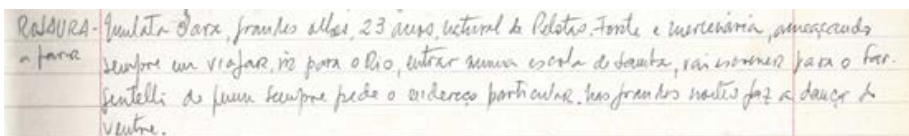 ROSAURA - Mulata clara, grandes olhos, 23 anos, natural de Pelotas. Forte e mercenária, ameaçando
a farra sempre em viajar, ir para o Rio, entrar numa escola de samba, vai escrever para o Sar-
gentelli de quem sempre pede o endereço particular. Nas grandes noites faz a dança do
ventre.